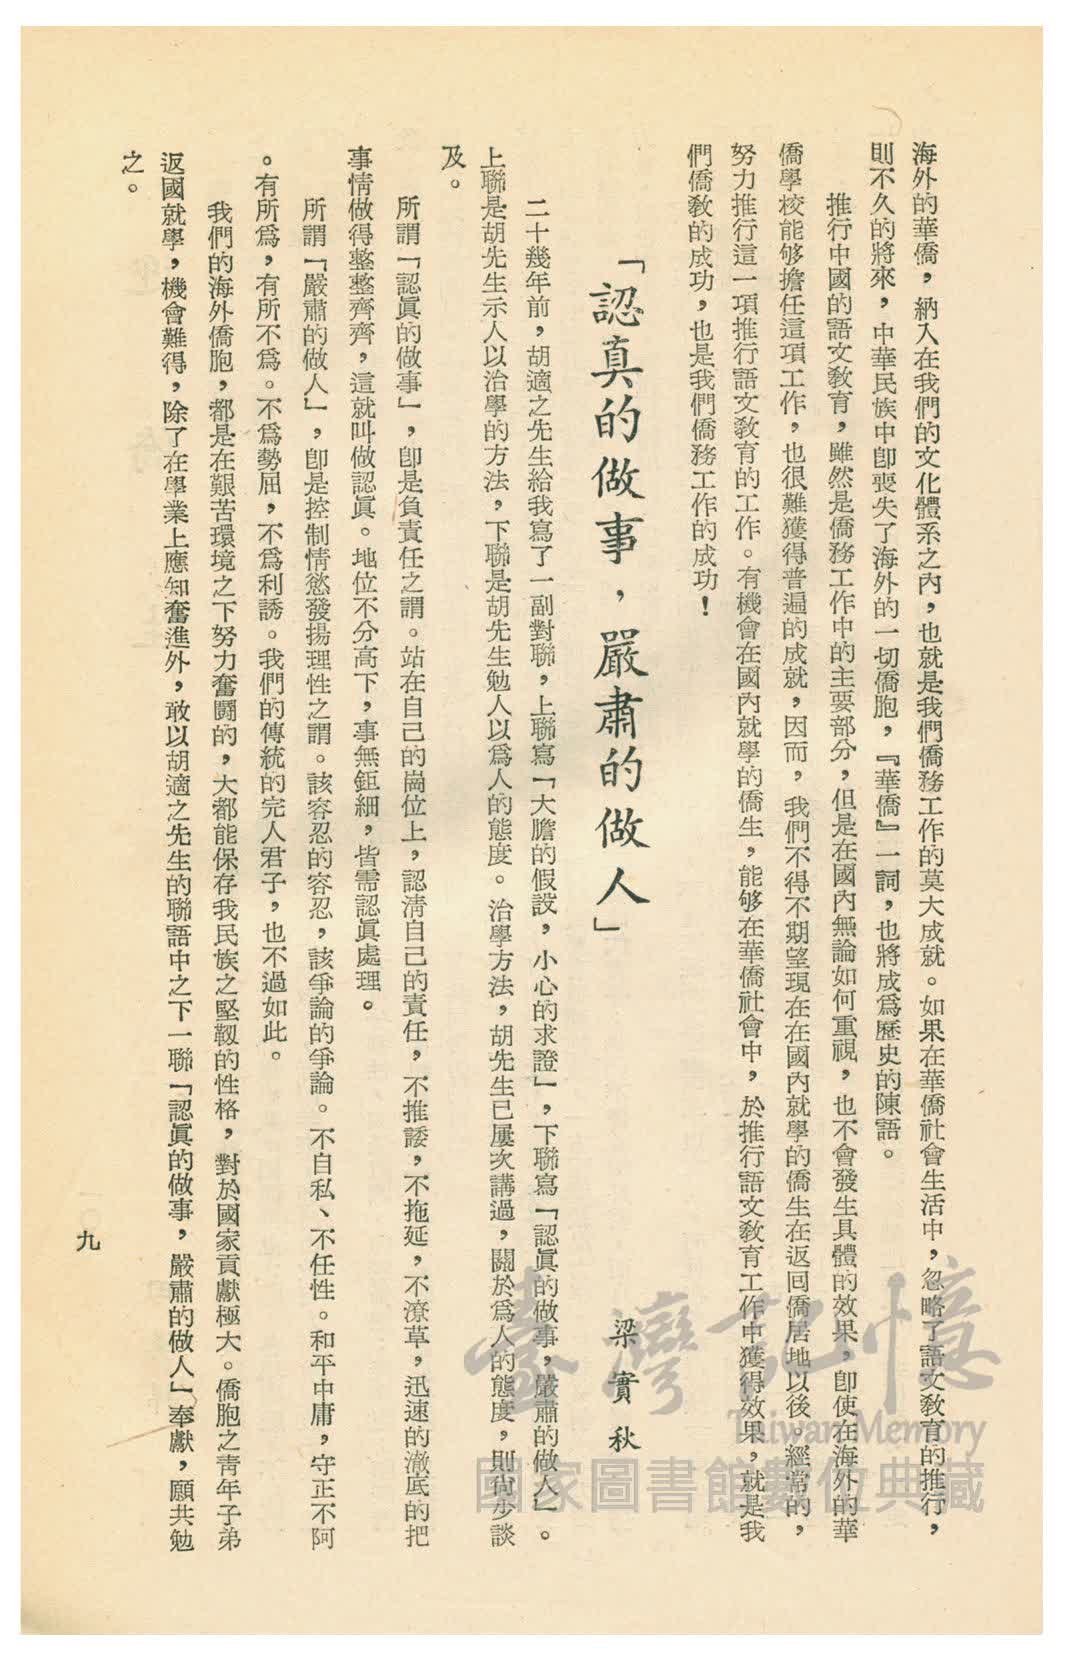 海外的華僑，納入在我們的文化體系之內，也就是我們僑務工作的莫大成就。如果在華僑社會生活中，忽略了語文教育的推行，
則不久的將來，中華民族中卽喪失了海外的一切僑胞，『華僑』一詞，也將成爲歷史的陳語。
推行中國的語文教育，雖然是僑務工作中的主要部分，但是在國內無論如何重視，也不會發生具體的效果，卽使在海外的華
僑學校能够擔任這項工作，也很難獲得普遍的成就，因而，我們不得不期望現在在國內就學的僑生在返回僑居地以後。經常的，
努力推行這一項推行語文教育的工作。有機會在國內就學的僑生，能够在華僑社會中，於推行語文教育工作中獲得效果，就是我
們僑教的成功，也是我們僑務工作的成功！
「認真的做事，嚴肅的做人」
梁實秋
二十幾年前，胡適之先生給我寫了一副對聯，上聯寫「大膽的假設，小心的求證」，下聯寫「認眞的做事，嚴肅的做人」。
上聯是胡先生示人以治學的方法，下聯是胡先生勉人以爲人的態度。治學方法，胡先生已屢次講過，關於爲人的態度，則尙少談
及。
所謂「認眞的做事」，卽是負責任之謂。站在自己的崗位上，認淸自己的責任，不推諉，不拖延，不潦草，迅速的澈底的把
事情做得整整齊齊，這就叫做認眞。地位不分高下，事無鉅細，皆需認眞處理。
所謂「嚴肅的做人」，卽是控制情慾發揚理性之謂。該容忍的容忍，該爭論的爭論。不自私、不任性。和平中庸，守正不阿
。有所爲，有所不爲。不爲勢屈，不爲利誘。我們的傳統的完人君子，也不過如此。
我們的海外僑胞，都是在艱苦環境之下努力奮鬪的，大都能保存我民族之堅靱的性格，對於國家貢獻極大。僑胞之靑年子弟
返國就學，機會難得，除了在學業上應知奮進外，敢以胡適之先生的聯語中之下一聯「認眞的做事，嚴肅的做人」奉獻，願共勉
之。
九
臺灣記憶
Taiwan Memory
國家圖書館數位典藏